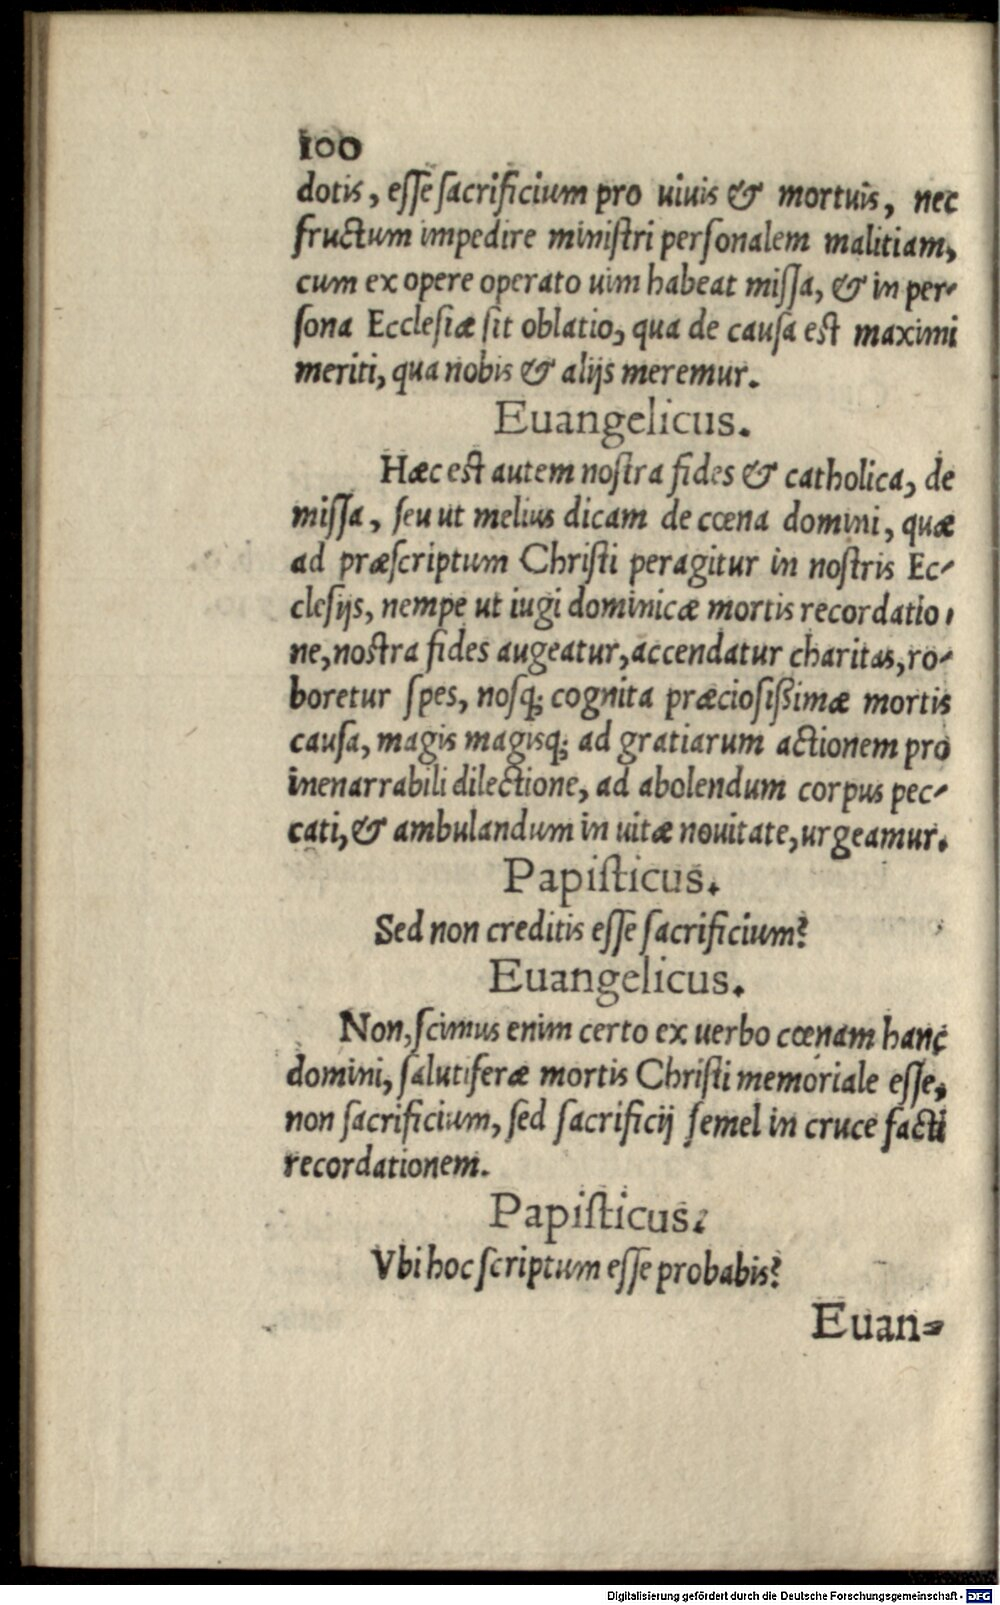 100
dotis, eſſe ſacrificium pro uiuis & mortuis, nec
fructum impedire miniſtri perſonalem malitiam,
cum ex opere operato uim habeat miſſa, & in per-
ſona Eccleſiæ ſit oblatio, qua de cauſa eſt maximi
meriti, qua nobis & alijs meremur.
Euangelicus.
Hæc eſt autem noſtra fides & catholica, de
miſſa, ſeu ut melius dicam de cœna domini, quæ
ad præſcriptum Chriſti peragitur in noſtris Ec-
cleſijs, nempe ut iugi dominicæ mortis recordatio-
ne, noſtra fides augeatur, accendatur charitas, ro-
boretur ſpes, noſq; cognita præcioſißimæ mortis
cauſa, magis magisq; ad gratiarum actionem pro
inenarrabili dilectione, ad abolendum corpus pec-
cati, & ambulandum in uitæ nouitate, urgeamur.
Papiſticus.
Sed non creditis eſſe ſacrificium?
Euangelicus.
Non, ſcimus enim certo ex uerbo cœnam hanc
domini, ſalutiferæ mortis Chriſti memoriale eſſe,
non ſacrificium, ſed ſacrificij ſemel in cruce facti
recordationem.
Papiſticus.
Vbi hoc ſcriptum eſſe probabis?
Euan=
Digitalisierung gefördert durch die Deutsche Forschungsgemeinschaft - DFG